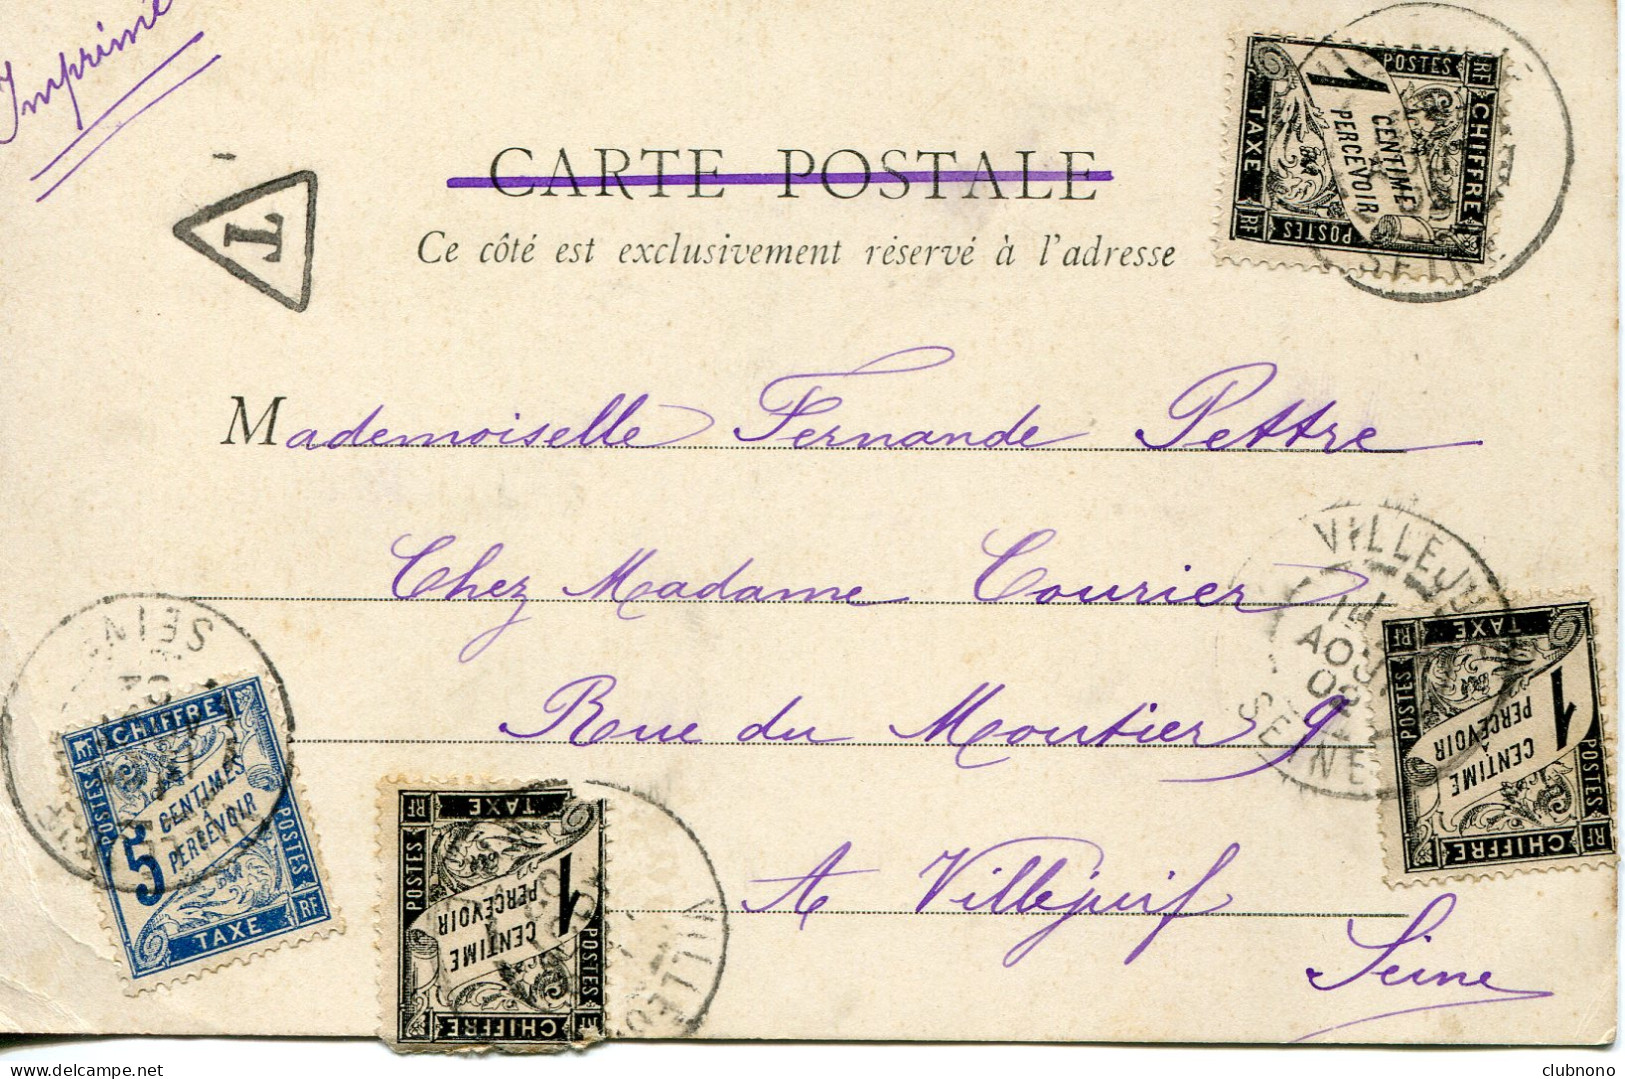 Imprimé
CARTE POSTALE
Ce côté est exclusivement réservé à l'adresse
T
Mademoiselle Fernande Pettre
Chez Madame Courier
Rue du Moutier 9
A Villejuif
Seine
POSTES RF
CHIFFRE
1
CENTIME
À
PERCEVOIR
TAXE
RF POSTES
SEINE
VILLEJUIF
AOUT
02
SEINE
RF TAXE
POSTES
1
CENTIME
À
PERCEVOIR
POSTES
CHIFFRE RF
SEINE
RF CHIFFRE
POSTES
5
CENTIMES
À
PERCEVOIR
POSTES
TAXE RF
RF TAXE
POSTES
1
CENTIME
À
PERCEVOIR
POSTES
CHIFFRE RF
VILLEJU
clubnono